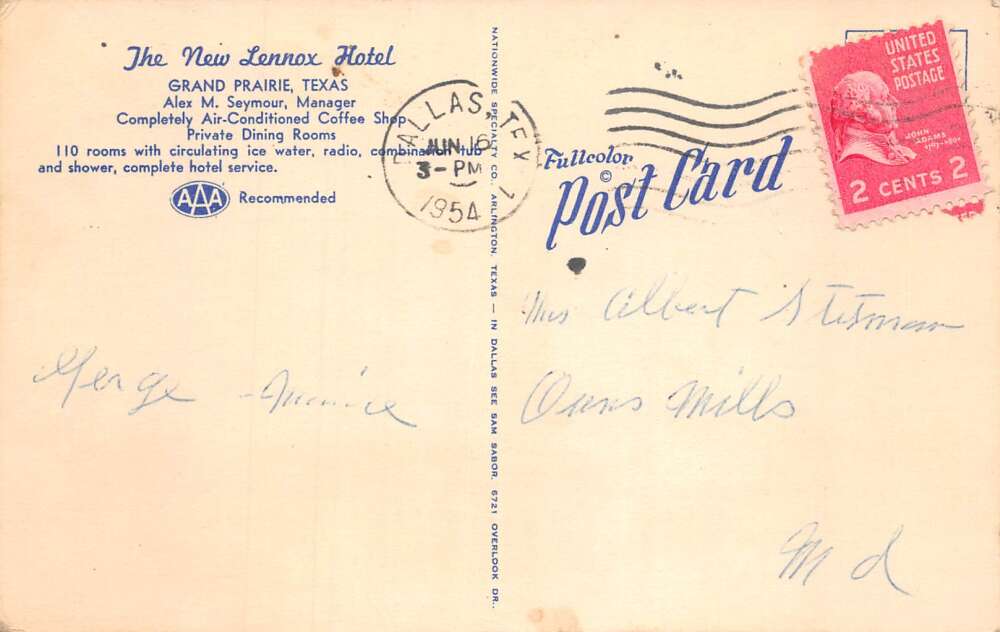 The New Lennox Hotel
GRAND PRAIRIE, TEXAS
Alex M. Seymour, Manager
Completely Air-Conditioned Coffee Shop
Private Dining Rooms
110 rooms with circulating ice water, radio, combination tub
and shower, complete hotel service.
AAA Recommended
DALLAS, TEX
JUN 16
3-PM
1954
NATIONWIDE SPECIALTY CO. ARLINGTON, TEXAS — IN DALLAS SEE SAM SABOR, 6721 OVERLOOK DR.
Fullcolor
©
Post Card
UNITED
STATES
POSTAGE
JOHN
ADAMS
2 CENTS 2
Mrs Albert
Mills
Md
Gerge